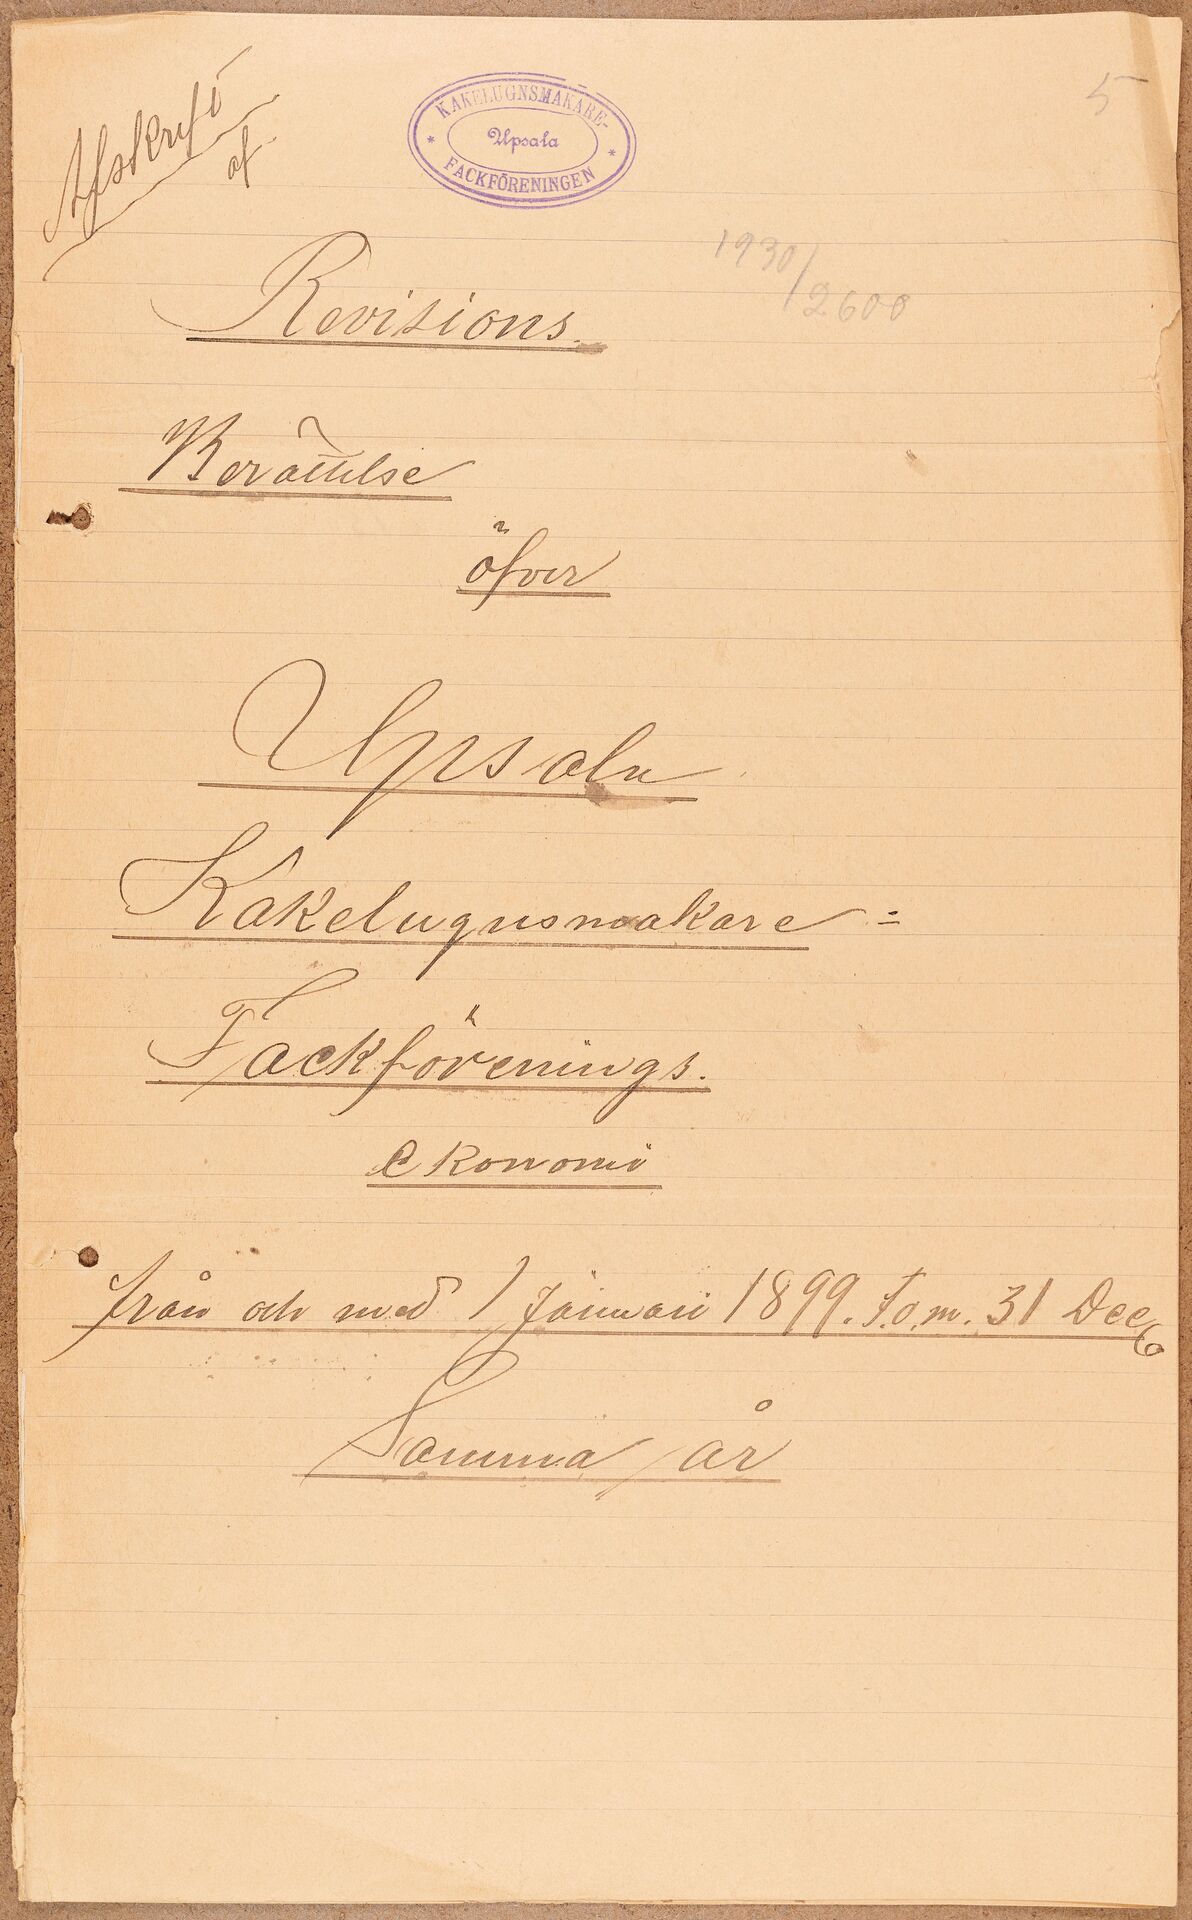 Afskrift
af
KAKELUGNSMAKARE-
Upsala
FACKFÖRENINGEN
5
1930/2600
Revisions
Berättelse
öfver
Upsala
Kakelugnsmakare=
Fackförenings.
ekonomi
från och med 1 Januari 1899. T.o.m. 31 Dec
Samma år